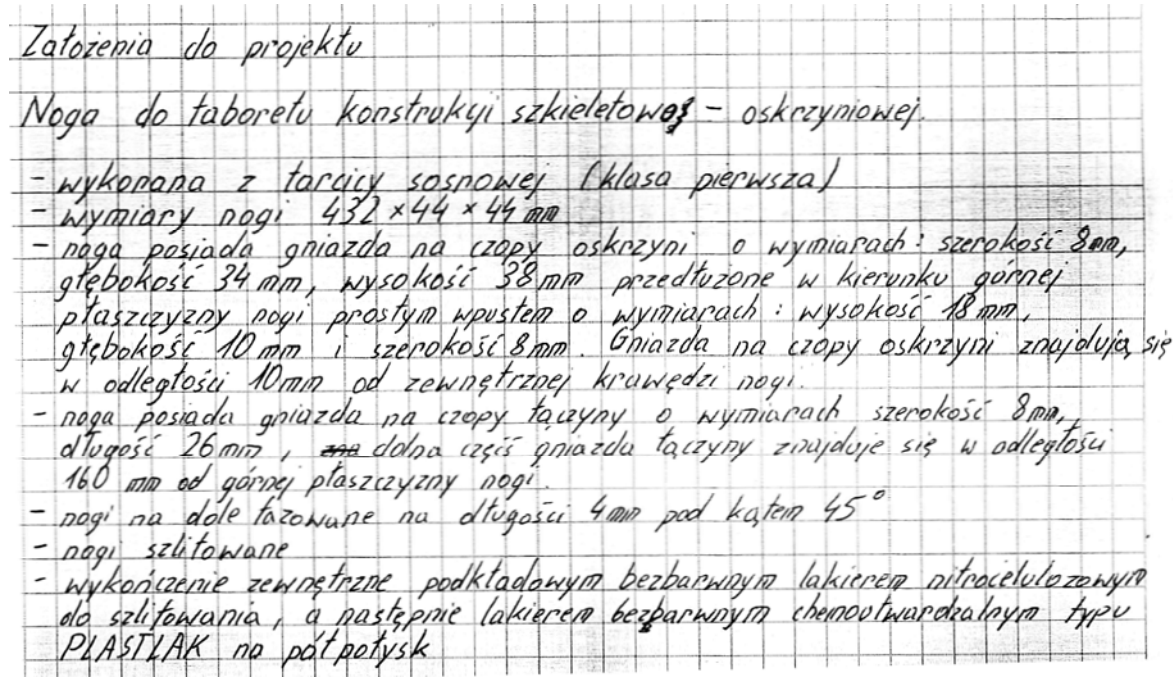 Założenia do projektu
Noga do taboretu konstrukcji szkieletowej - oskrzyniowej.
- wykonana z tarcicy sosnowej (klasa pierwsza)
- wymiary nogi 432 × 44 × 44 mm
- noga posiada gniazda na czopy oskrzyni o wymiarach: szerokość 8mm,
głębokość 34 mm, wysokość 38 mm przedłużone w kierunku górnej
płaszczyzny nogi prostym wpustem o wymiarach: wysokość 18 mm,
głębokość 10 mm i szerokość 8 mm. Gniazda na czopy oskrzyni znajdują się
w odległości 10mm od zewnętrznej krawędzi nogi.
- noga posiada gniazda na czopy łączyny o wymiarach szerokość 8mm,
długość 26 mm, dolna część gniazda łączyny znajduje się w odległości
160 mm od górnej płaszczyzny nogi.
- nogi na dole fazowane na długości 4 mm pod kątem 45°
- nogi szlifowane
- wykończenie zewnętrzne podkładowym bezbarwnym lakierem nitrocelulozowym
do szlifowania, a następnie lakierem bezbarwnym chemoutwardzalnym typu
PLASTLAK na półpołysk